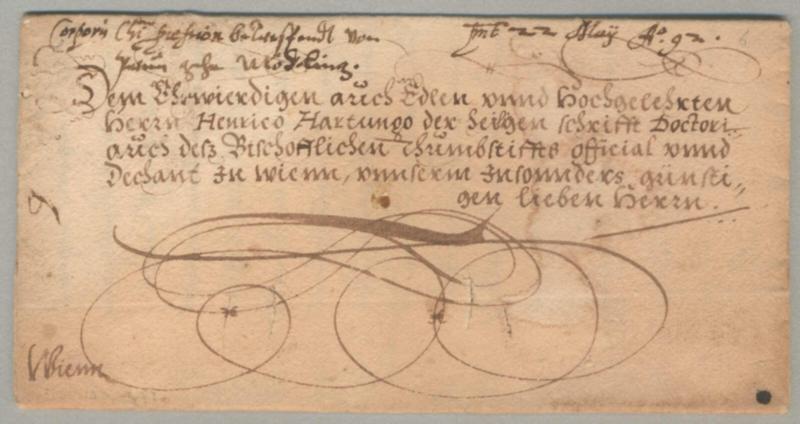 Corporis Chri Procession betreffendt von
Mödling.
22 May Ao. 92.
Dem Ehrwierdigen auch Edlen vnnd Hochgelehrten
Herrn Henrico Hartungo der heilgen schrifft Doctori
auch desz Bischofflichen Thumbstiffts official vnnd
Dechant zu wienn, vnnserm Insonnders günsti„
gen lieben Herrn.
Wienn